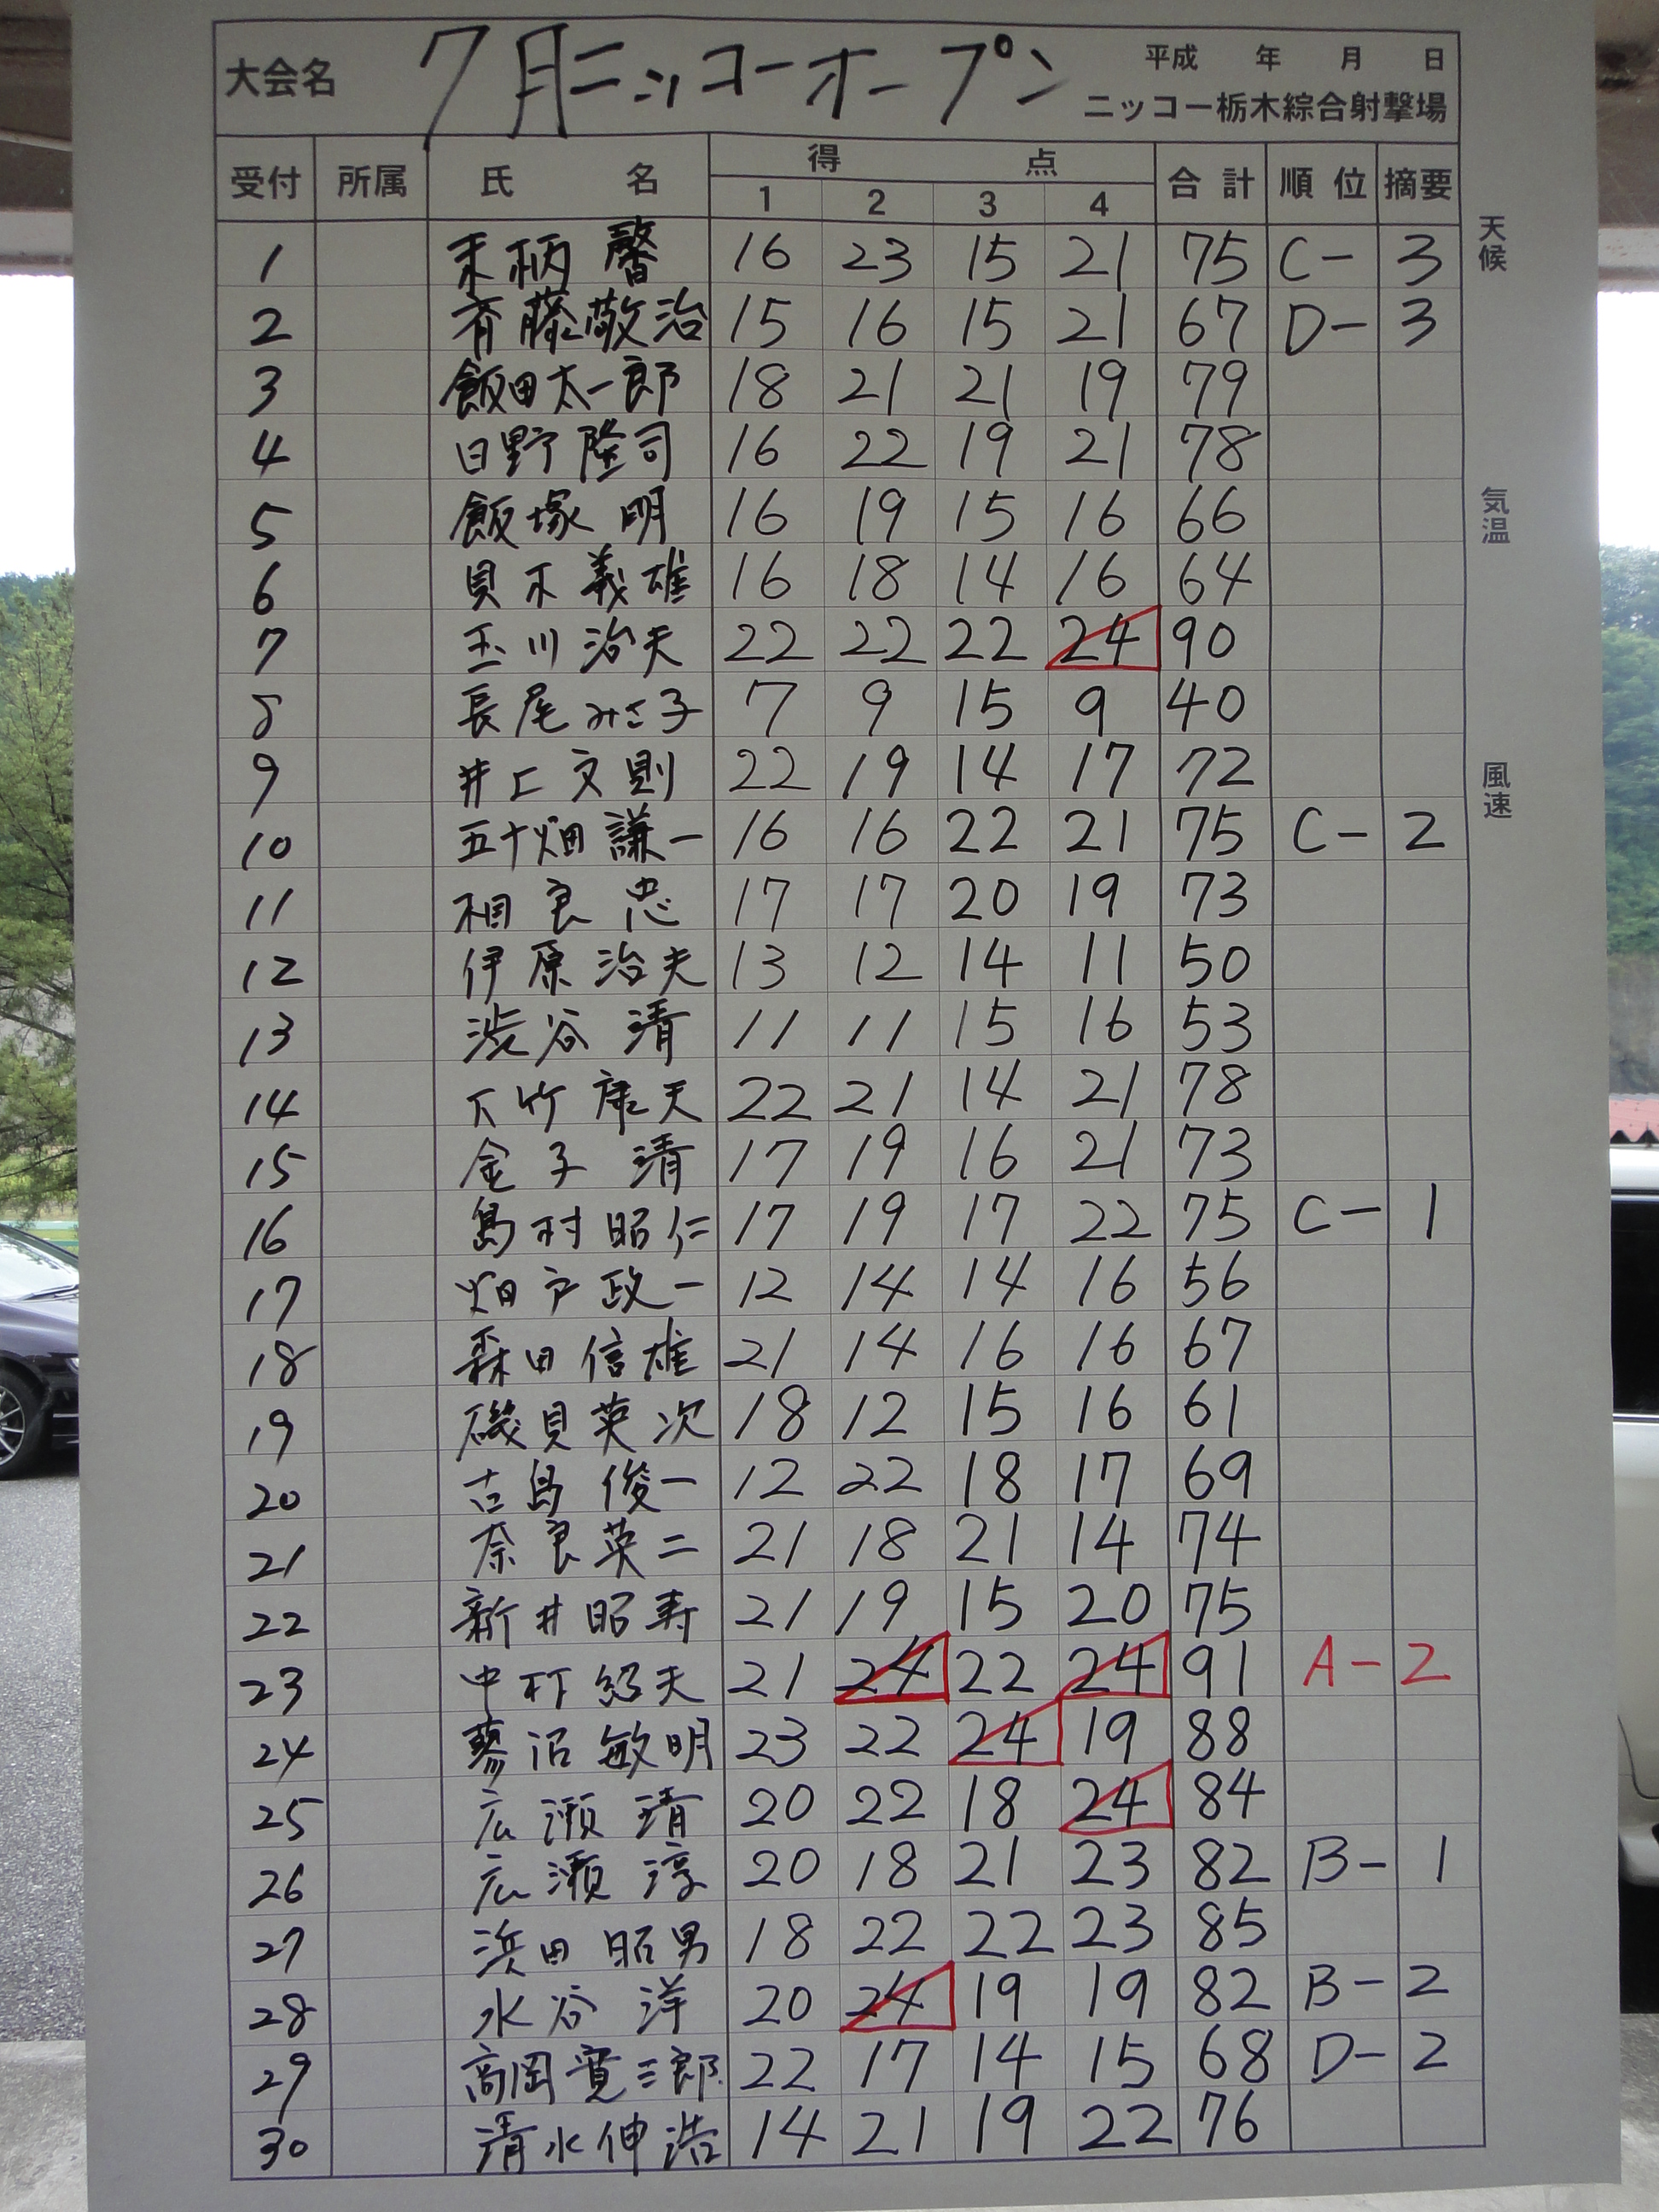 大会名 7月ニッコーオープン 平成 年 月 日
ニッコー栃木綜合射撃場
受付 所属 氏名 得点 合計 順位 摘要
1 2 3 4
1 末柄 馨 16 23 15 21 75 C- 3
2 斉藤敬治 15 16 15 21 67 D- 3
3 飯田太一郎 18 21 21 19 79
4 日野隆司 16 22 19 21 78
5 飯塚 明 16 19 15 16 66
6 貝木義雄 16 18 14 16 64
7 玉川治夫 22 22 22 24 90
8 長尾みさ子 7 9 15 9 40
9 井上文則 22 19 14 17 72
10 五十畑謙一 16 16 22 21 75 C- 2
11 相良 忠 17 17 20 19 73
12 伊原治夫 13 12 14 11 50
13 渋谷 清 11 11 15 16 53
14 大竹康夫 22 21 14 21 78
15 金子 清 17 19 16 21 73
16 島村昭仁 17 19 17 22 75 C- 1
17 畑戸政一 12 14 14 16 56
18 森田信雄 21 14 16 16 67
19 磯貝英次 18 12 15 16 61
20 古島俊一 12 22 18 17 69
21 奈良英二 21 18 21 14 74
22 新井昭寿 21 19 15 20 75
23 中村紹夫 21 24 22 24 91 A- 2
24 蓼沼敏明 23 22 24 19 88
25 広瀬 清 20 22 18 24 84
26 広瀬 淳 20 18 21 23 82 B- 1
27 浜田昭男 18 22 22 23 85
28 水谷 洋 20 24 19 19 82 B- 2
29 高岡寛三郎 22 17 14 15 68 D- 2
30 清水伸浩 14 21 19 22 76
天候
気温
風速